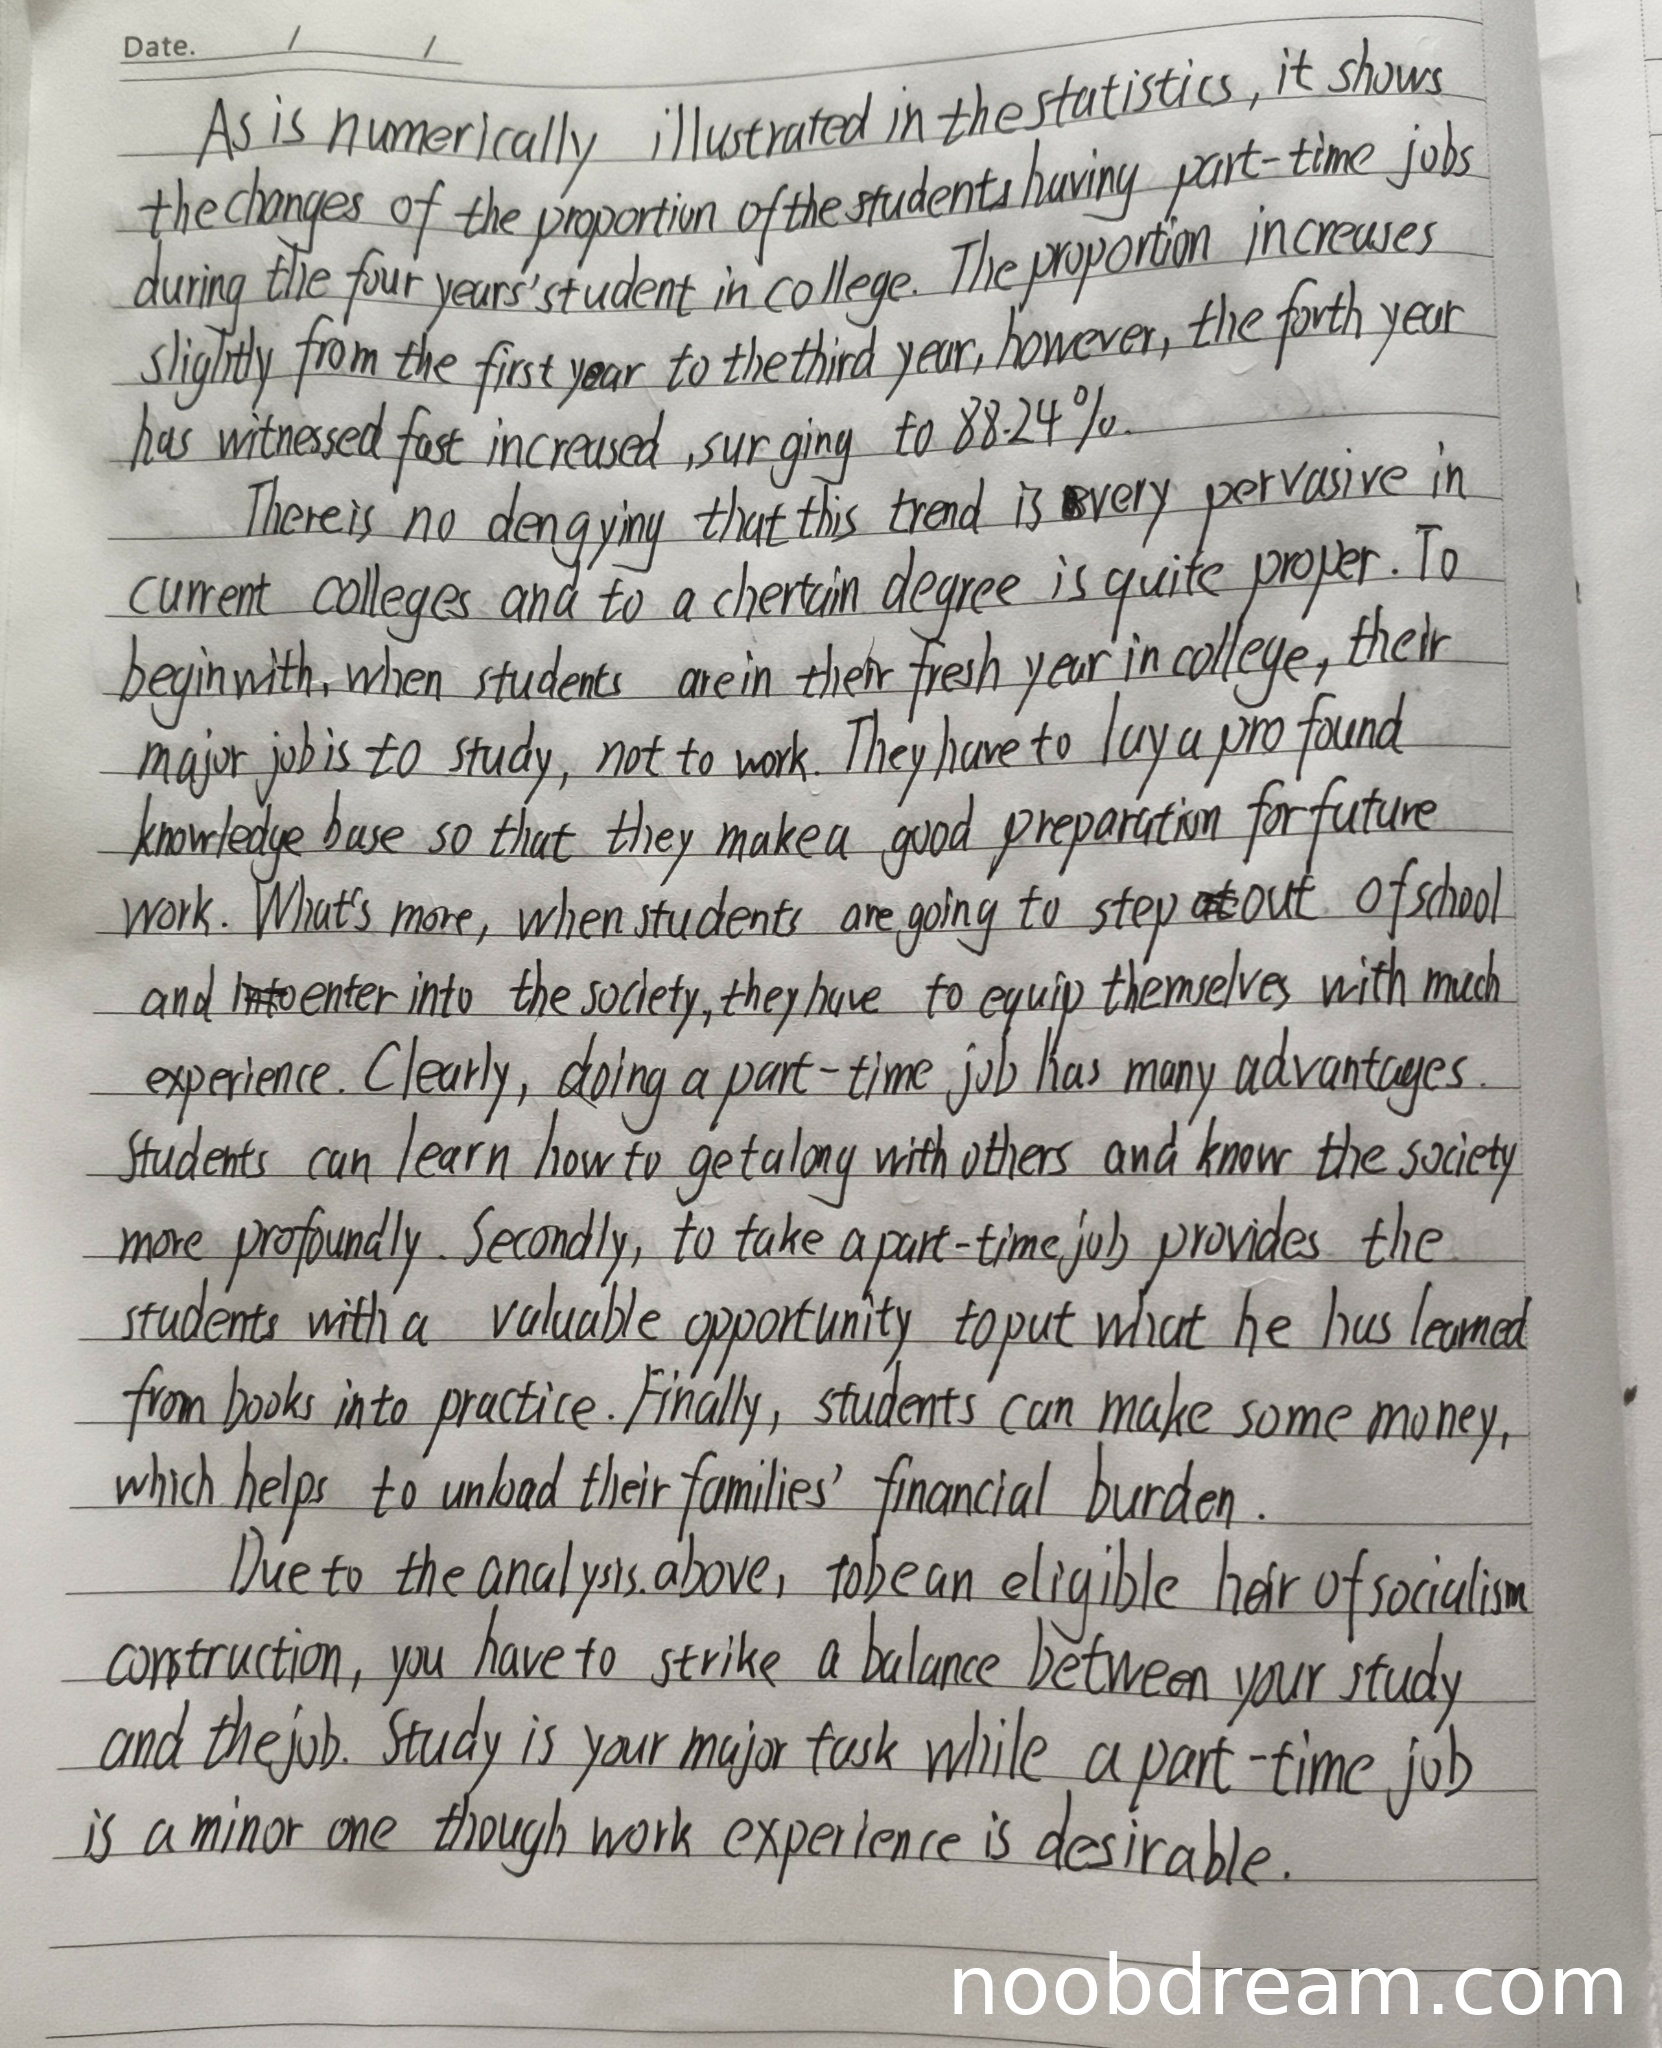 Date. / /
As is numerically illustrated in the statistics, it shows
the changes of the proportion of the students having part-time jobs
during the four years' student in college. The proportion increases
slightly from the first year to the third year, however, the forth year
has witnessed fast increased, surging to 88.24%.
There is no dengying that this trend is very pervasive in
current colleges and to a chertain degree is quite proper. To
begin with, when students are in their fresh year in college, their
major job is to study, not to work. They have to lay a profound
knowledge base so that they make a good preparation for future
work. What's more, when students are going to step out of school
and enter into the society, they have to equip themselves with much
experience. Clearly, doing a part-time job has many advantages.
Students can learn how to get along with others and know the society
more profoundly. Secondly, to take a part-time job provides the
students with a valuable opportunity to put what he has learned
from books into practice. Finally, students can make some money,
which helps to unload their families' financial burden.
Due to the analysis above, to be an eligible heir of socialism
construction, you have to strike a balance between your study
and the job. Study is your major task while a part-time job
is a minor one though work experience is desirable.
noobdream.com